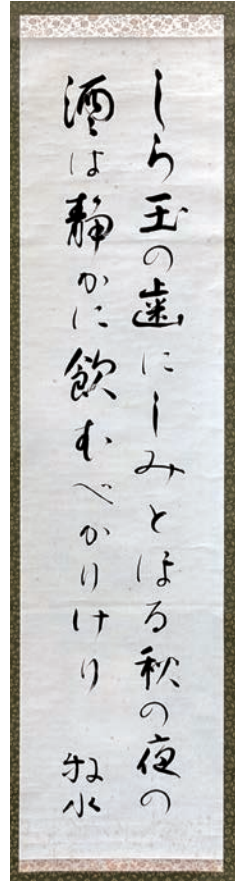 しら玉の歯にしみとほる秋の夜の
酒は静かに飲むべかりけり 牧水